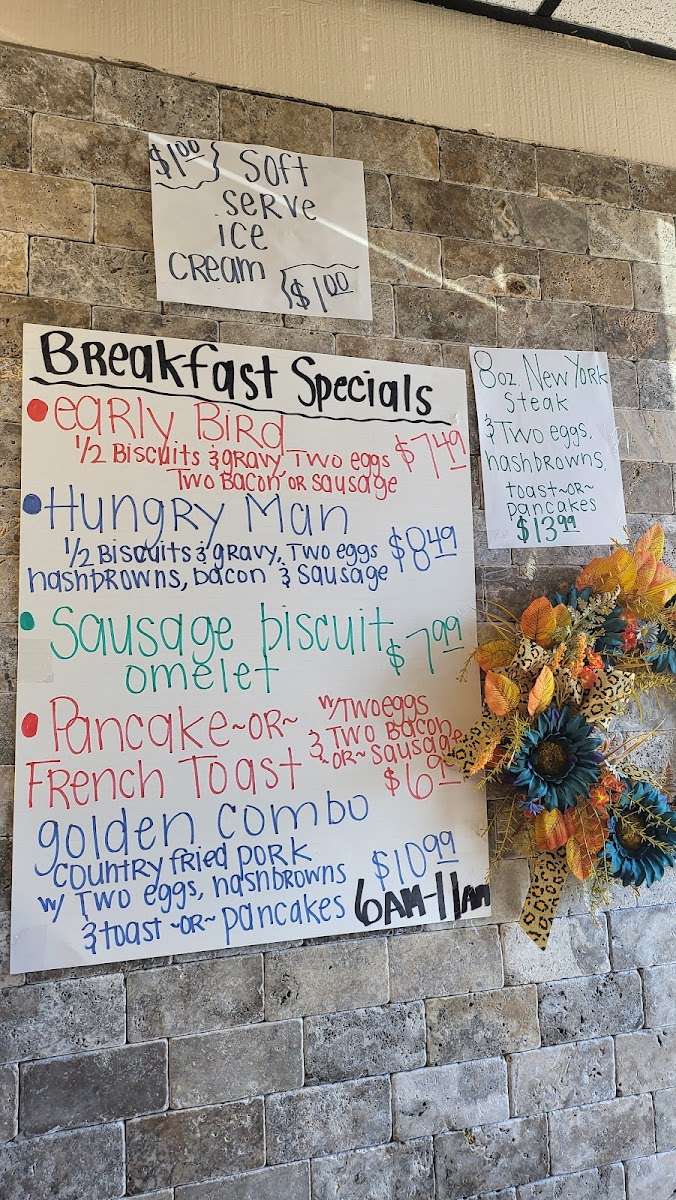 $1.00 Soft
serve
ice
cream $1.00
Breakfast Specials
early Bird
1/2 Biscuits & gravy, Two eggs $7.49
Two Bacon or sausage
Hungry Man
1/2 Biscuits & gravy, Two eggs $8.49
hashbrowns, bacon & sausage
Sausage biscuit $7.99
omelet
Pancake ~OR~ w/ Two eggs
& Two Bacon
French Toast ~OR~ sausage
golden combo
country fried pork $10.99
w/ Two eggs, hashbrowns
& toast ~OR~ pancakes 6AM-11AM
8oz. New York
Steak
& Two eggs,
hashbrowns,
toast ~OR~
pancakes
$13.99